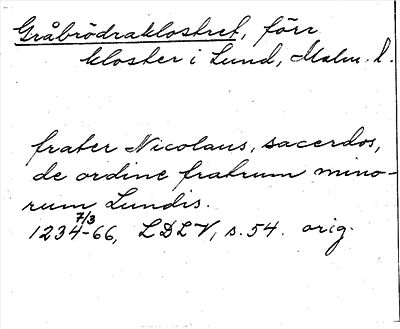 Gråbrödraklostret, förr
kloster i Lund, Malm. l.
frater Nicolaus, sacerdos,
de ordine fratrum mino-
rum Lundis.
7/3
1234-66, LDLV, s. 54. orig.